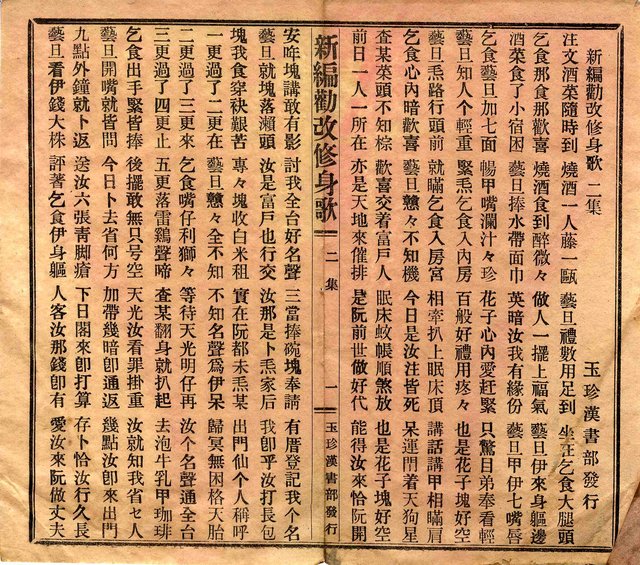 新編勸改修身歌 二集
玉珍漢書部發行
注文酒菜隨時到 燒酒一人藤一甌 藝旦禮數用足到 坐在乞食大腿頭
乞食那食那歡喜 燒酒食到醉微々 做人一擺上福氣 藝旦伊來身軀邊
酒菜食了小宿困 藝旦捧水帶面巾 英暗汝我有緣份 藝旦甲伊七嘴唇
乞食藝旦加七面 暢甲嘴瀾汁々珍 花子心內愛赶緊 只驚目弟奉看輕
藝旦知人个輕重 緊焄乞食入內房 百般好禮用疼々 也是花子塊好空
藝旦焄路行頭前 就瞞乞食入房宮 相牽扒上眠床頂 講話講甲相瞞肩
乞食心內暗歡喜 藝旦戇々不知機 今日是汝注皆死 呆運閗着天狗星
查某菜頭不知棕 歡喜交着富戶人 眠床蚊帳順煞放 也是花子塊好空
前日一人一所在 亦是天地來催排 是阮前世做好代 能得汝來恰阮開
新編勸改修身歌 二集 一 玉珍漢書部發行
安咋塊講敢有影 討我全台好名聲 三當捧碗塊奉請 有厝登記我个名
藝旦就塊落瀨頭 汝是富戶也行交 汝那是卜焄家后 我卽乎汝打長包
塊我食穿袂艱苦 專々塊收白米租 實在阮都未焄某 出門仙个人稱呼
一更過了二更在 藝旦戇々全不知 不知名聲爲伊呆 歸冥無困格天胎
二更過了三更來 乞食嘴仔利獅々 等待天光明仔再 汝个名聲通全台
三更過了四更止 五更落雷鷄聲啼 查某翻身就扒起 去泡牛乳甲珈琲
乞食出手緊皆捧 後擺敢無只号空 天光汝看罪掛重 汝就知我省七人
藝旦開嘴就皆問 今日卜去省何方 加帶幾暗卽通返 幾點汝卽來出門
九點外鐘就卜返 送汝六張靑脚瘡 下日閣來卽打算 存卜恰汝行久長
藝旦看伊錢大株 評著乞食伊身軀 人客汝那錢卽有 愛汝來阮做丈夫